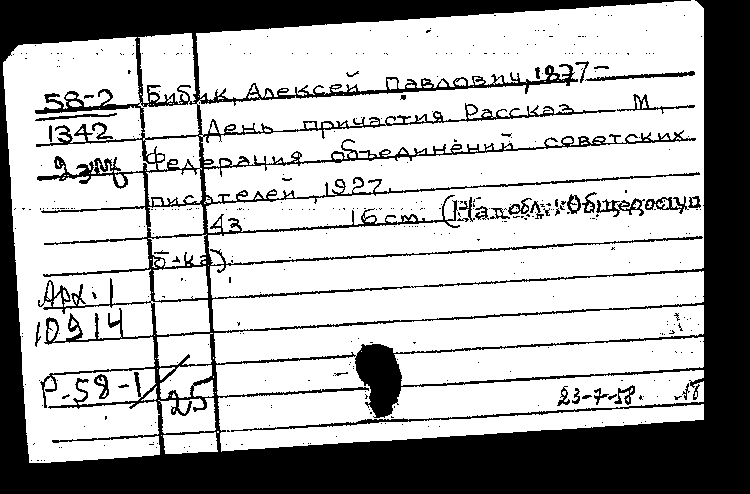 58-2 Бибик, Алексей Павлович, 1877-
1342 День причастия. Рассказ. М.,
2 экз Федерация объединений советских
писателей, 1927.
43 16 см. (На обл.: Общедоступ
б-ка).
Арх. 1
10914
Р-58-1/25
23-7-58.